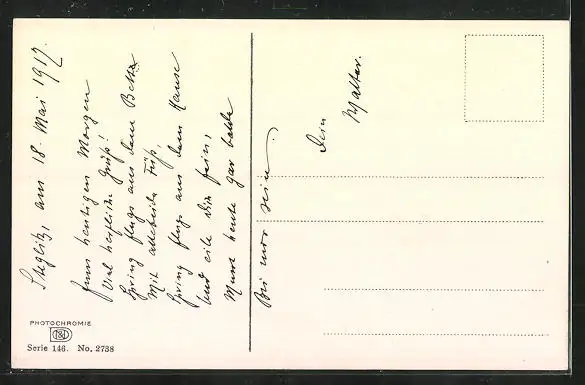 Steglitz, am 18. Mai 1917.
Zum heutigen Morgen
Viel herzliche Grüß!
Spring flugs aus dem Bette
Mit beide Füß,
Spring flugs aus dem Hause
Und eile Dir fein,
Mußt heute gar balde
Bei mir sein.
Dein
Walter.
PHOTOCHROMIE
Serie 146. No. 2738